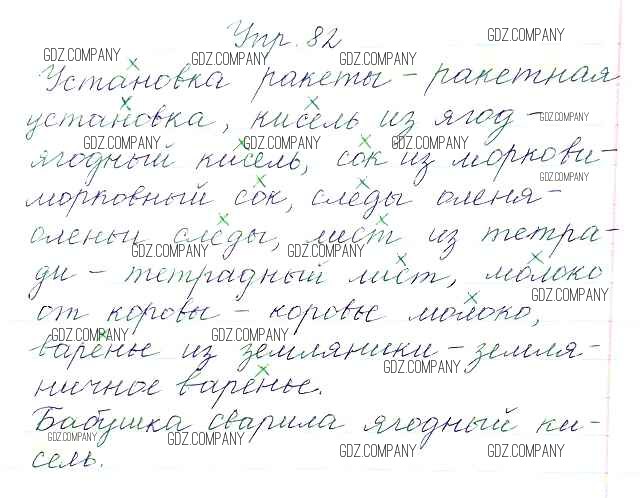 Упр. 82
GDZ.COMPANY
GDZ.COMPANY GDZ.COMPANY GDZ.COMPANY
Установка ракеты – ракетная
установка, кисель из ягод –
GDZ.COMPANY
GDZ.COMPANY GDZ.COMPANY GDZ.COMPANY
ягодный кисель, сок из моркови –
GDZ.COMPANY
морковный сок, следы оленя –
оленьи следы, лист из тетра-
GDZ.COMPANY GDZ.COMPANY
ди – тетрадный лист, молоко
GDZ.COMPANY
от коровы – коровье молоко,
GDZ.COMPANY GDZ.COMPANY
варенье из земляники – земля-
GDZ.COMPANY
ничное варенье.
Бабушка сварила ягодный ки-
GDZ.COMPANY GDZ.COMPANY GDZ.COMPANY GDZ.COMPANY
сель.